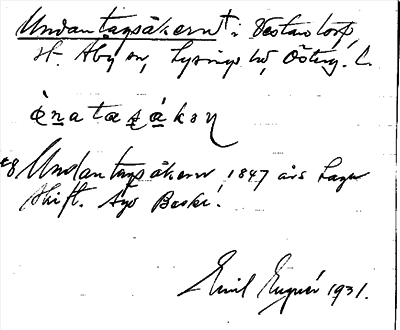 Undantagsåkern† i Västantorp,
st. Åby sn, Lysings hd, Österg. L.
ùnatasákəɳ
Undantagsåkern 1847 års Laga
skift. Ägo Beskr.
Emil 1931.